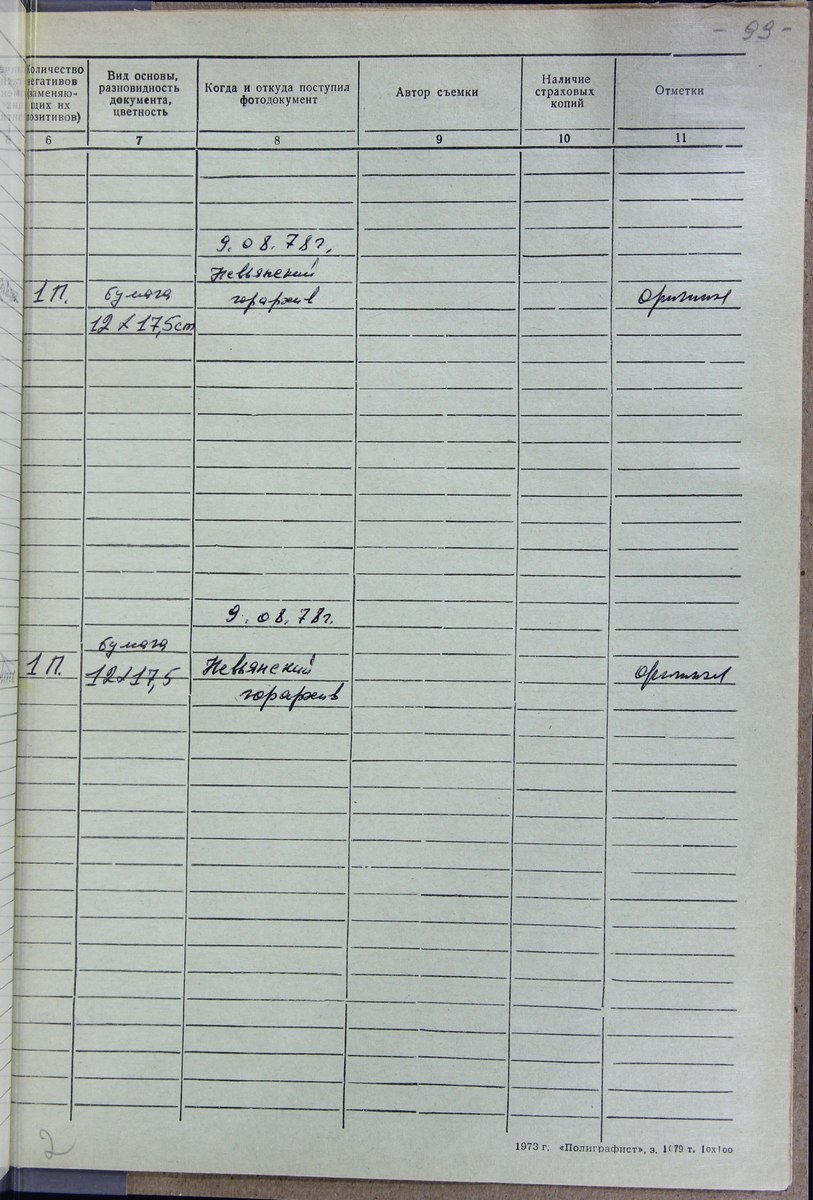 - 99 -
Количество
негативов
(заменяю-
щих их
позитивов)
Вид основы,
разновидность
документа,
цветность
Когда и откуда поступил
фотодокумент
Автор съемки
Наличие
страховых
копий
Отметки
6 7 8 9 10 11
9.08.78г.
Невьянский
1 П. бумага горархив оригинал
12 x 17,5 cm
9.08.78г.
бумага
1 П. 12x17,5 Невьянский оригинал
горархив
2
1973 г. «Полиграфист», з. 1079 т. 10x100